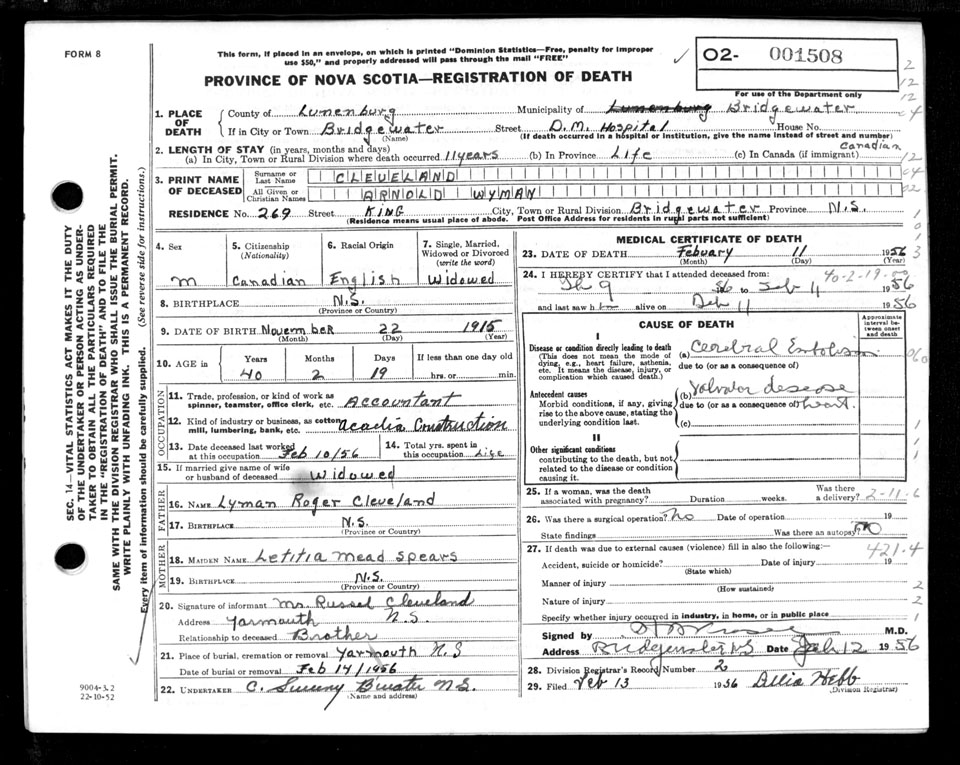 FORM 8
This form, if placed in an envelope, on which is printed "Dominion Statistics—Free, penalty for improper
use $50," and properly addressed will pass through the mail "FREE"
O2- 001508
For use of the Department only
PROVINCE OF NOVA SCOTIA—REGISTRATION OF DEATH
1. PLACE OF DEATH
County of Lunenburg Municipality of Lunenburg Bridgewater
If in City or Town Bridgewater Street D.M. Hospital House No.
(Name) (If death occurred in a hospital or institution, give the name instead of street and number)
2. LENGTH OF STAY (in years, months and days)
(a) In City, Town or Rural Division where death occurred 11 years (b) In Province Life (c) In Canada (if immigrant) Canadian
3. PRINT NAME OF DECEASED
Surname or Last Name CLEVELAND
All Given or Christian Names ARNOLD WYMAN
RESIDENCE No. 269 Street KING City, Town or Rural Division Bridgewater Province N.S.
(Residence means usual place of abode. Post Office Address for residents in rural parts not sufficient)
4. Sex M
5. Citizenship (Nationality) Canadian
6. Racial Origin English
7. Single, Married, Widowed or Divorced (write the word) Widowed
8. BIRTHPLACE N.S.
(Province or Country)
9. DATE OF BIRTH November 22 1915
(Month) (Day) (Year)
10. AGE in Years Months Days If less than one day old
40 2 19 hrs. or min.
OCCUPATION
11. Trade, profession, or kind of work as spinner, teamster, office clerk, etc. Accountant
12. Kind of industry or business, as cotton mill, lumbering, bank, etc. Acadia Construction
13. Date deceased last worked at this occupation Feb 10/56
14. Total yrs. spent in this occupation Life
15. If married give name of wife or husband of deceased Widowed
FATHER
16. NAME Lyman Roger Cleveland
17. BIRTHPLACE N.S.
(Province or Country)
MOTHER
18. MAIDEN NAME Letitia Mead Spears
19. BIRTHPLACE N.S.
(Province or Country)
20. Signature of informant Mr Russel Cleveland
Address Yarmouth N.S.
Relationship to deceased Brother
21. Place of burial, cremation or removal Yarmouth N.S
Date of burial or removal Feb 14/1956
22. UNDERTAKER C. Sweeny B'water N.S.
(Name and address)
MEDICAL CERTIFICATE OF DEATH
23. DATE OF DEATH Febuary 11 1956
(Month) (Day) (Year)
40-2-19
24. I HEREBY CERTIFY that I attended deceased from:
Feb 9 56 to Feb 11 1956
and last saw h alive on Feb 11 1956
CAUSE OF DEATH
Approximate interval between onset and death
I
Disease or condition directly leading to death
(This does not mean the mode of dying, e.g., heart failure, asthenia, etc. It means the disease, injury, or complication which caused death.)
(a) Cerebral Embolism
due to (or as a consequence of)
Antecedent causes
Morbid conditions, if any, giving rise to the above cause, stating the underlying condition last.
(b) Valvular desease
due to (or as a consequence of) heart.
(c)
II
Other significant conditions
contributing to the death, but not related to the disease or condition causing it.
25. If a woman, was the death associated with pregnancy? Duration weeks. Was there a delivery? 2-11-6
26. Was there a surgical operation? No Date of operation 19
State findings Was there an autopsy? No
27. If death was due to external causes (violence) fill in also the following:— 421.4
Accident, suicide or homicide? Date of injury 19
(State which)
Manner of injury
(How sustained)
Nature of injury
Specify whether injury occurred in industry, in home, or in public place
Signed by M.D.
Address Bridgewater NS Date Feb 12 1956
28. Division Registrar's Record Number 2
29. Filed Feb 13 1956 Delia Hebb
(Division Registrar)
SEC. 14—VITAL STATISTICS ACT MAKES IT THE DUTY
OF THE UNDERTAKER OR PERSON ACTING AS UNDER-
TAKER TO OBTAIN ALL THE PARTICULARS REQUIRED
IN THE "REGISTRATION OF DEATH" AND TO FILE THE
SAME WITH THE DIVISION REGISTRAR WHO SHALL ISSUE THE BURIAL PERMIT.
WRITE PLAINLY WITH UNFADING INK. THIS IS A PERMANENT RECORD.
Every item of information should be carefully supplied. (See reverse side for instructions.)
9004-3.2
22-10-52